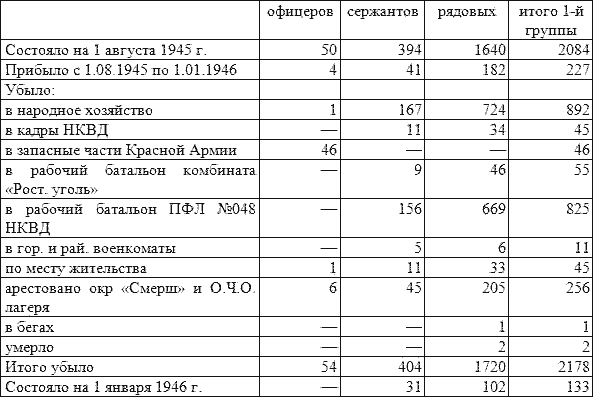 офицеров сержантов рядовых итого 1-й
группы
Состояло на 1 августа 1945 г. 50 394 1640 2084
Прибыло с 1.08.1945 по 1.01.1946 4 41 182 227
Убыло:
в народное хозяйство 1 167 724 892
в кадры НКВД — 11 34 45
в запасные части Красной Армии 46 — — 46
в рабочий батальон комбината — 9 46 55
«Рост. уголь»
в рабочий батальон ПФЛ №048 — 156 669 825
НКВД
в гор. и рай. военкоматы — 5 6 11
по месту жительства 1 11 33 45
арестовано окр «Смерш» и О.Ч.О. 6 45 205 256
лагеря
в бегах — — 1 1
умерло — — 2 2
Итого убыло 54 404 1720 2178
Состояло на 1 января 1946 г. — 31 102 133